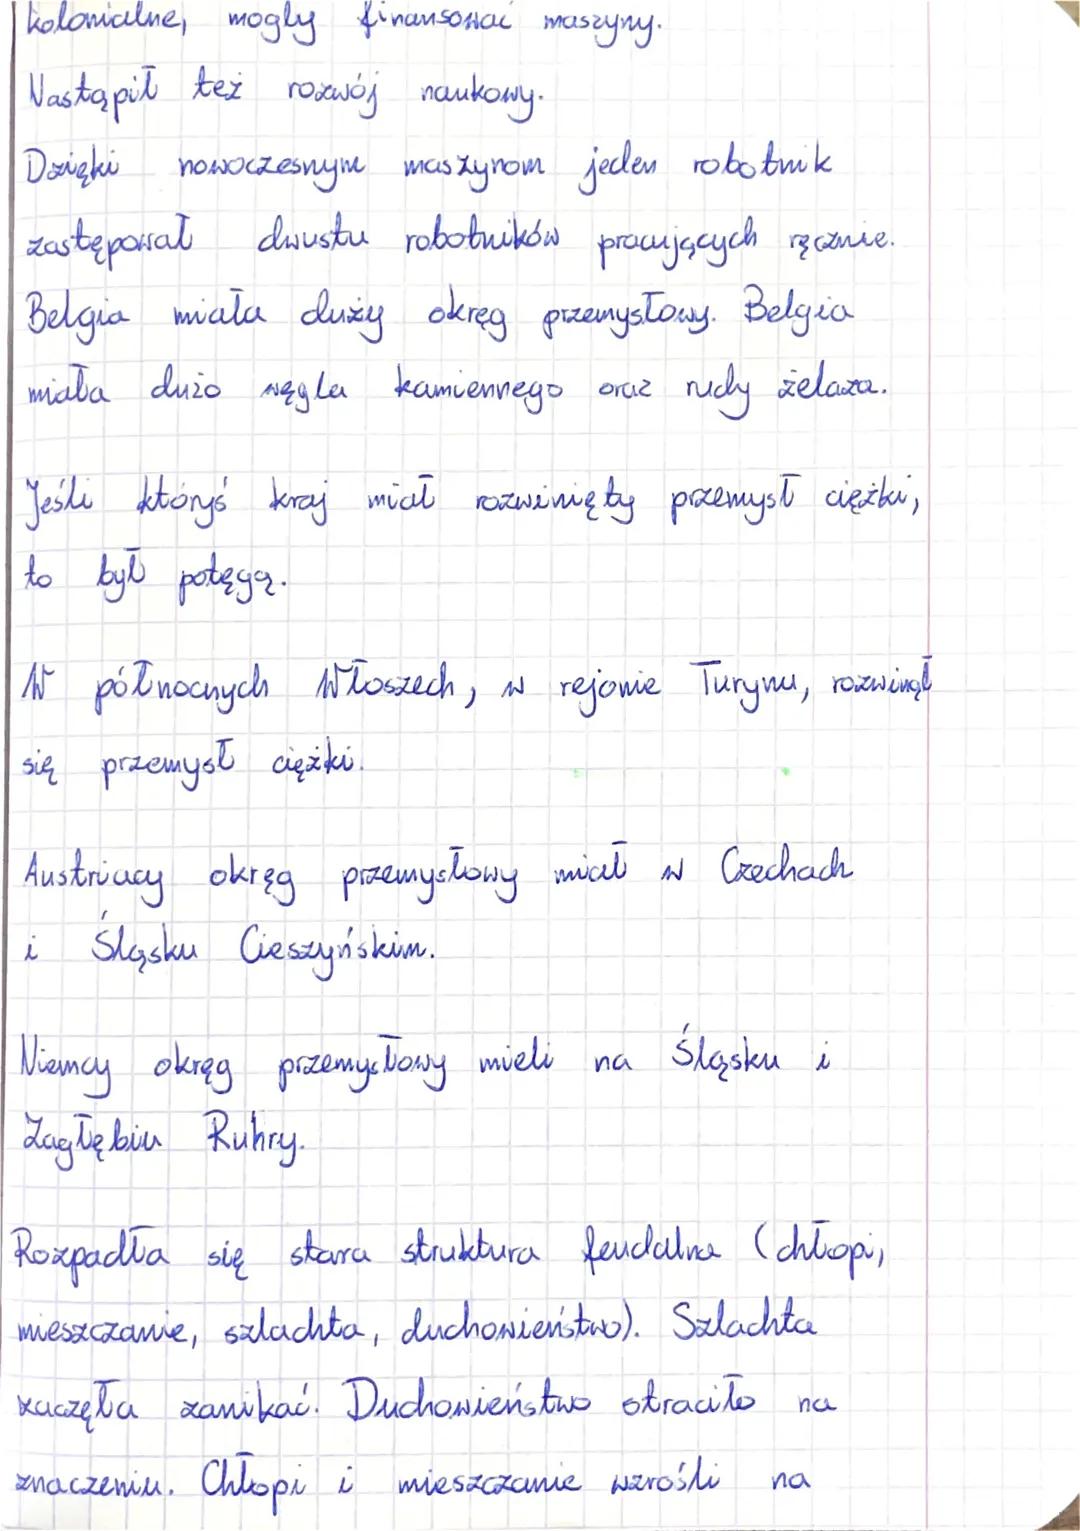 kolonialne, mogły finansować maszyny.
Nastąpił też rozwój naukowy.
Dzięki nowoczesnym maszynom jeden robotnik
zastępował dwustu robotników pracujących ręcznie.
Belgia miała duży okręg przemysłowy. Belgia
miała dużo węgla kamiennego oraz rudy żelaza.
Jeśli któryś kraj miał rozwinięty przemysł ciężki,
to był potęgą.
W północnych Włoszech, w rejonie Turynu, rozwinął
się przemysł ciężki.
Austriacy okręg przemysłowy miał w Czechach
i Śląsku Cieszyńskim.
Niemcy okręg przemysłowy mieli na Śląsku i
Zagłębiu Ruhry.
Rozpadła się stara struktura feudalna (chłopi,
mieszczanie, szlachta, duchowieństwo). Szlachta
zaczęła zanikać. Duchowieństwo straciło na
znaczeniu. Chłopi i mieszczanie wzrośli na